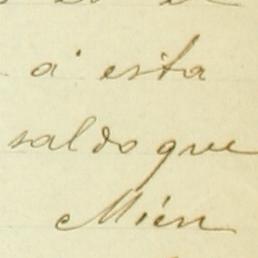 á esta
saldo que
Mién